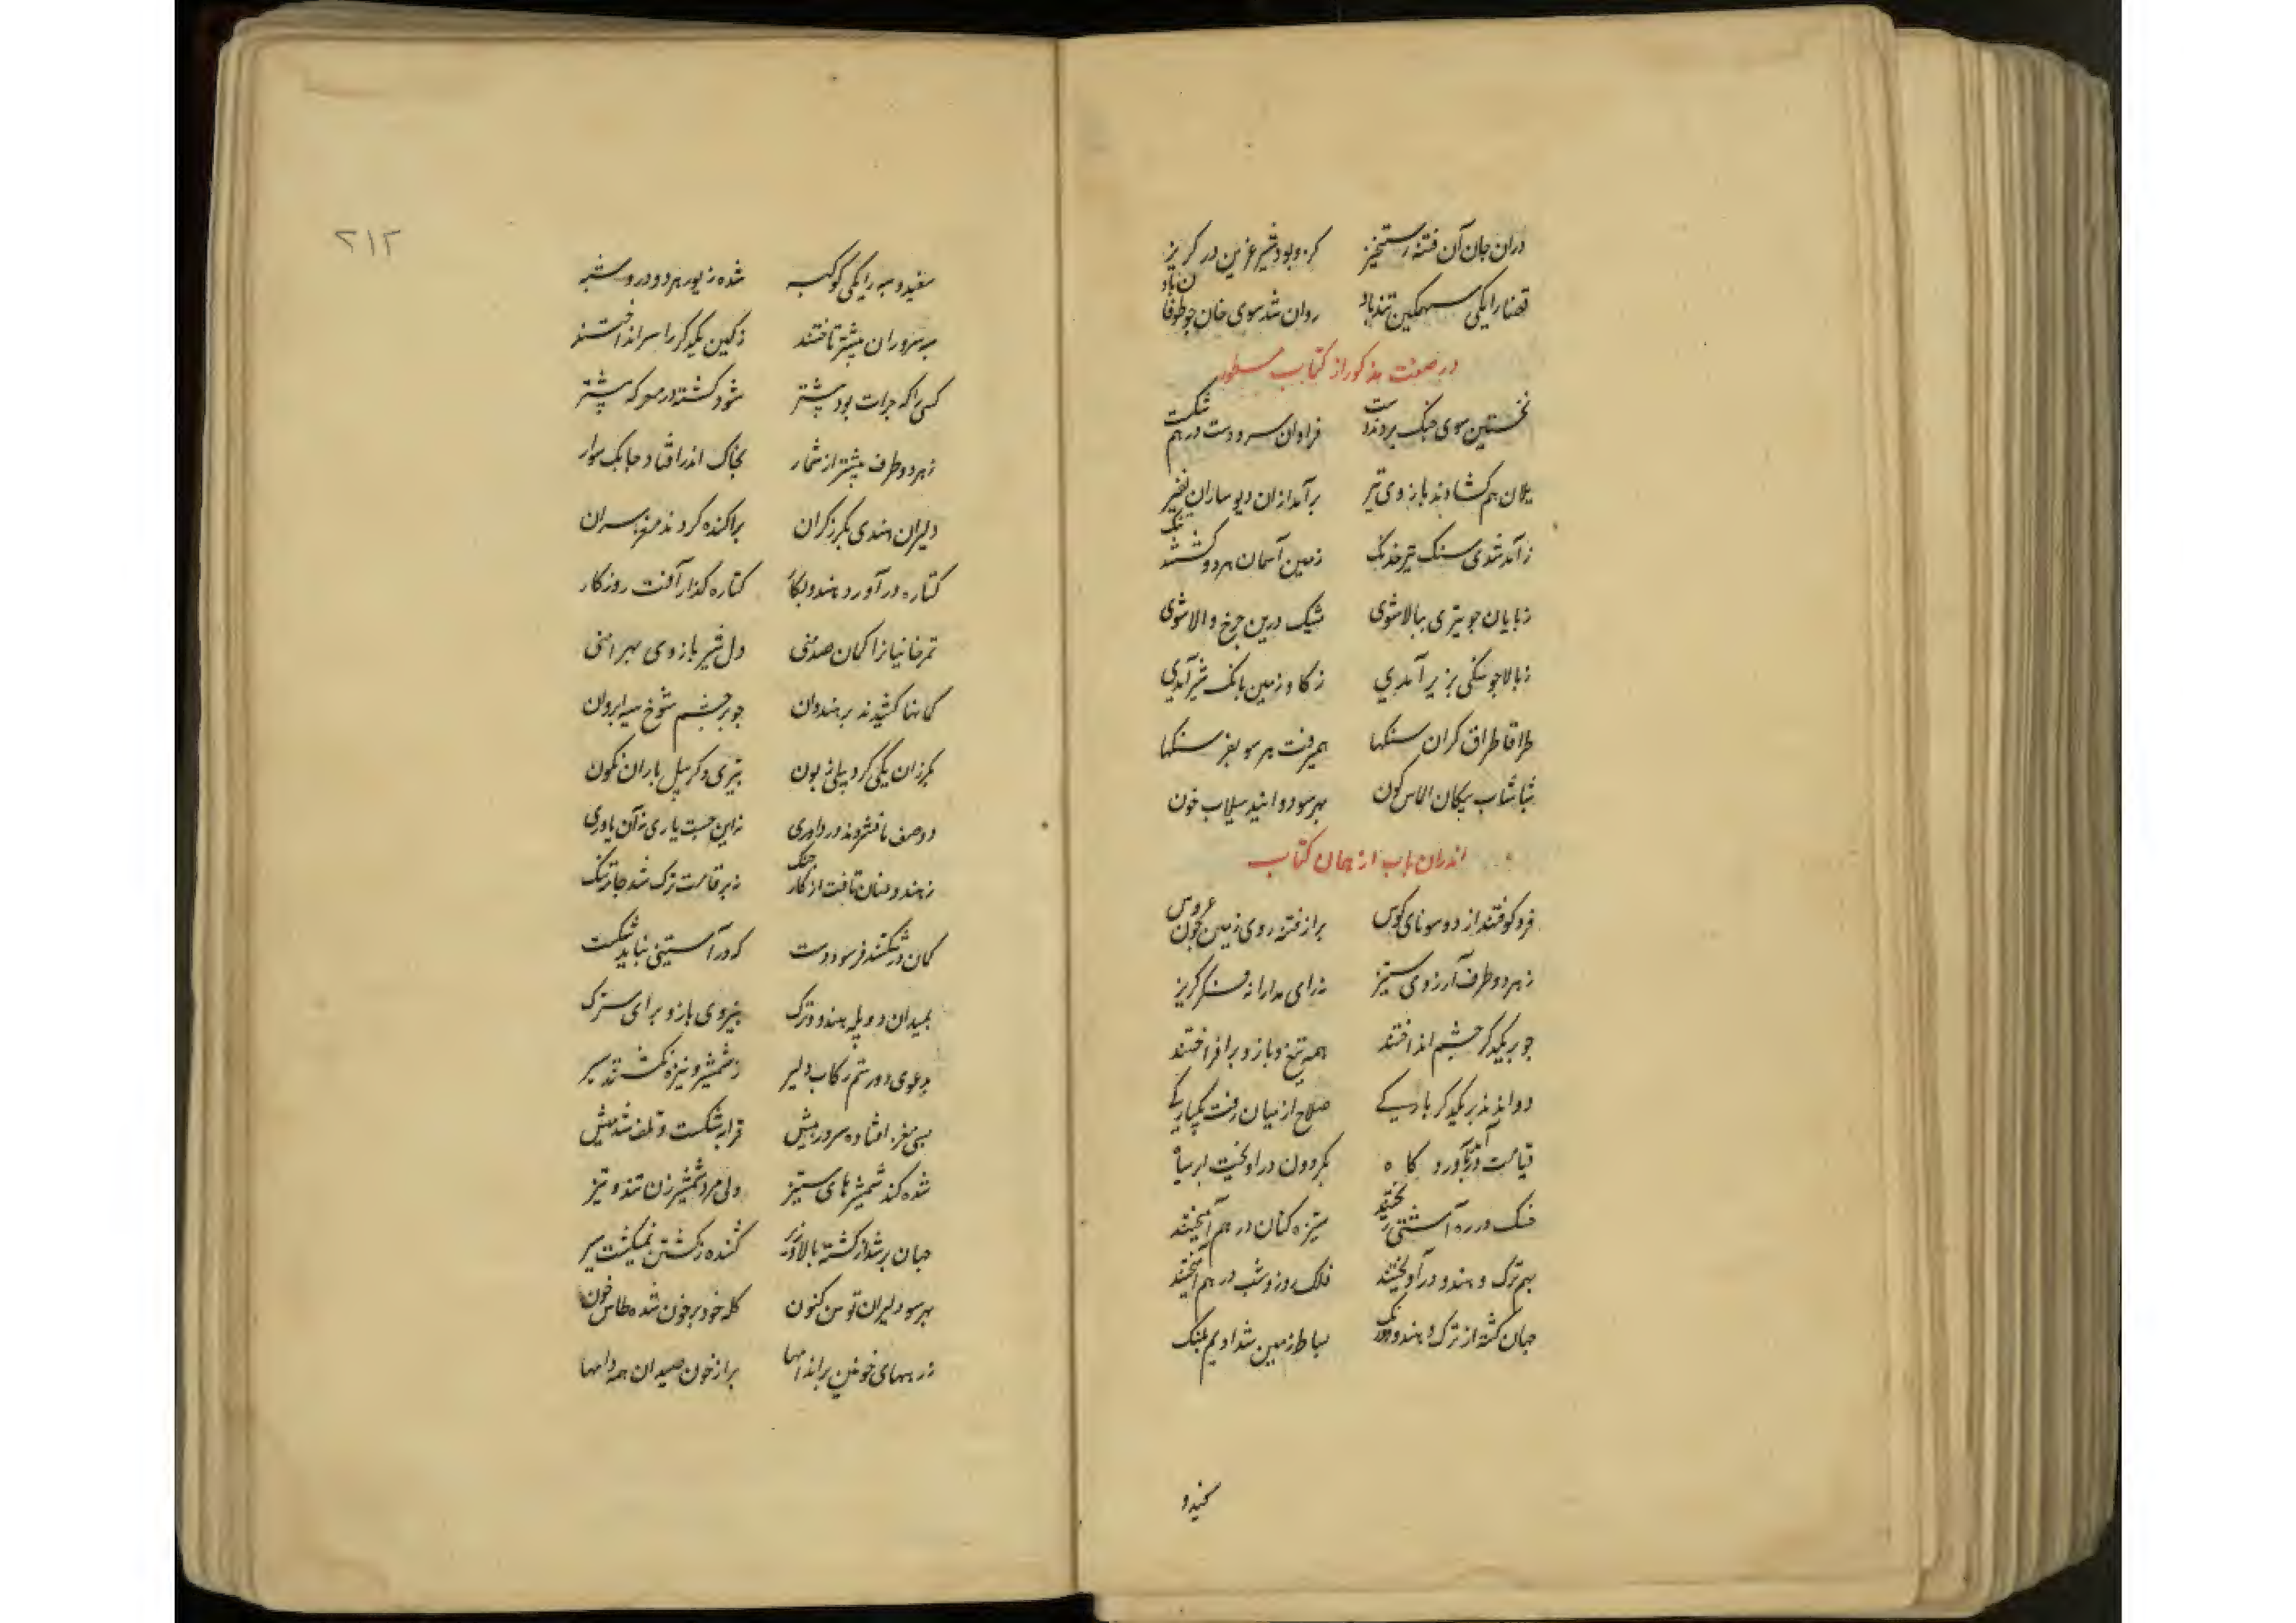 دران جان آن فتنه رستخیز کزو بود شیر عرین در کریز
قضا را یکی سهمکین تندباد روان شد سوی خان جو طوفان باد
در صفت مذکور از کتاب مسطور
نخستین سوی جنک بردند دست فراوان سر و دست در هم شکست
یلان هم کشادند بازوی تیر برآمد ازان دیوساران نفیر
ز آمد شدی سنک تیر خدنک زمین آسمان هر دو
ز پایان جو تیری ببالا شدی مشبک درین جرخ والا شدی
ز بالا جو سنکی بزیر آمدی ز کاو زمین بانک شیر آمدی
طراقا طراق کران سنکها همیرفت هر سو بفرسنکها
شباشاب پیکان الماس کون بهر سو دوانید سیلاب خون
اندران باب از همان کتاب
فرو کوفتند از دو سو نای کوس برازفته روی زمین جون عروس
ز هر دو طرف آرزوی ستیز نه رای مدارا نه فکر کریز
جو بر یکدکر جشم انداختند همه تیغ و بازو برافراختند
دواندند بر یکدکر بارکی صلاح از میان رفت یکبارکی
قیامت درآورد بکردون دراویخت ابر سیاه
خسک در ره آشتی ریختند ستیزه کنان در هم آمیختند
بهم ترک و هندو درآویختند فلک روز و شب در هم آمیختند
جهان کشته از ترک و هندو دو رنک بساط زمین شد ادیم پلنک
سفید و سیه را یکی کوکبه شده زیور هر دو در وسیه
سروران پیشتر تاختند ز کین یکدکر را سر انداختند
کسی را که جرات بود پیشتر شود کشته در معرکه پیشتر
ز هر دو طرف پیشتر از شمار بخاک اندر افتاد جابک سوار
دلیران هندی بکرز کران پراکنده کردند مغز سران
کتاره درآورد هندو بکار کتاره کذار آفت روزکار
تمرخانیان را کمان صد منی دل شیر بازوی بهرامنی
کمانها کشیدند بر هندوان جو بر جشم شوخ سیه ابروان
بکرز آن یکی کرد پیلی زبون بتیری دکر پیل باران نکون
دو صف پا فشردند در داوری نه این جست یاری نه آن یاوری
ز هندو عنان تافت از کار جنک نه بر قامت ترک شد جامه تنک
کمان در شکستند فرسود دست که در آستینی نباید شکست
بمیدان دو پله هندو و ترک بنیروی بازو برای سترک
بدعوی دو رستم رکاب دلیر ز شمشیر و نیزه نکشتند سیر
بسی مغز افتاده سرور پیش قرابه شکست و تلف شد
شده کند شمشیرهای ستیز ولی مرد شمشیر زن تند و تیز
جهان پر شد از کشته بالا و زیر کشنده ز کشتن نمیکشت سیر
بهر سو دلیران توسن کنون کله خود پر خون شده طاس خون
زرههای خونین بر اندامها پر از خون صیدان همه دامها